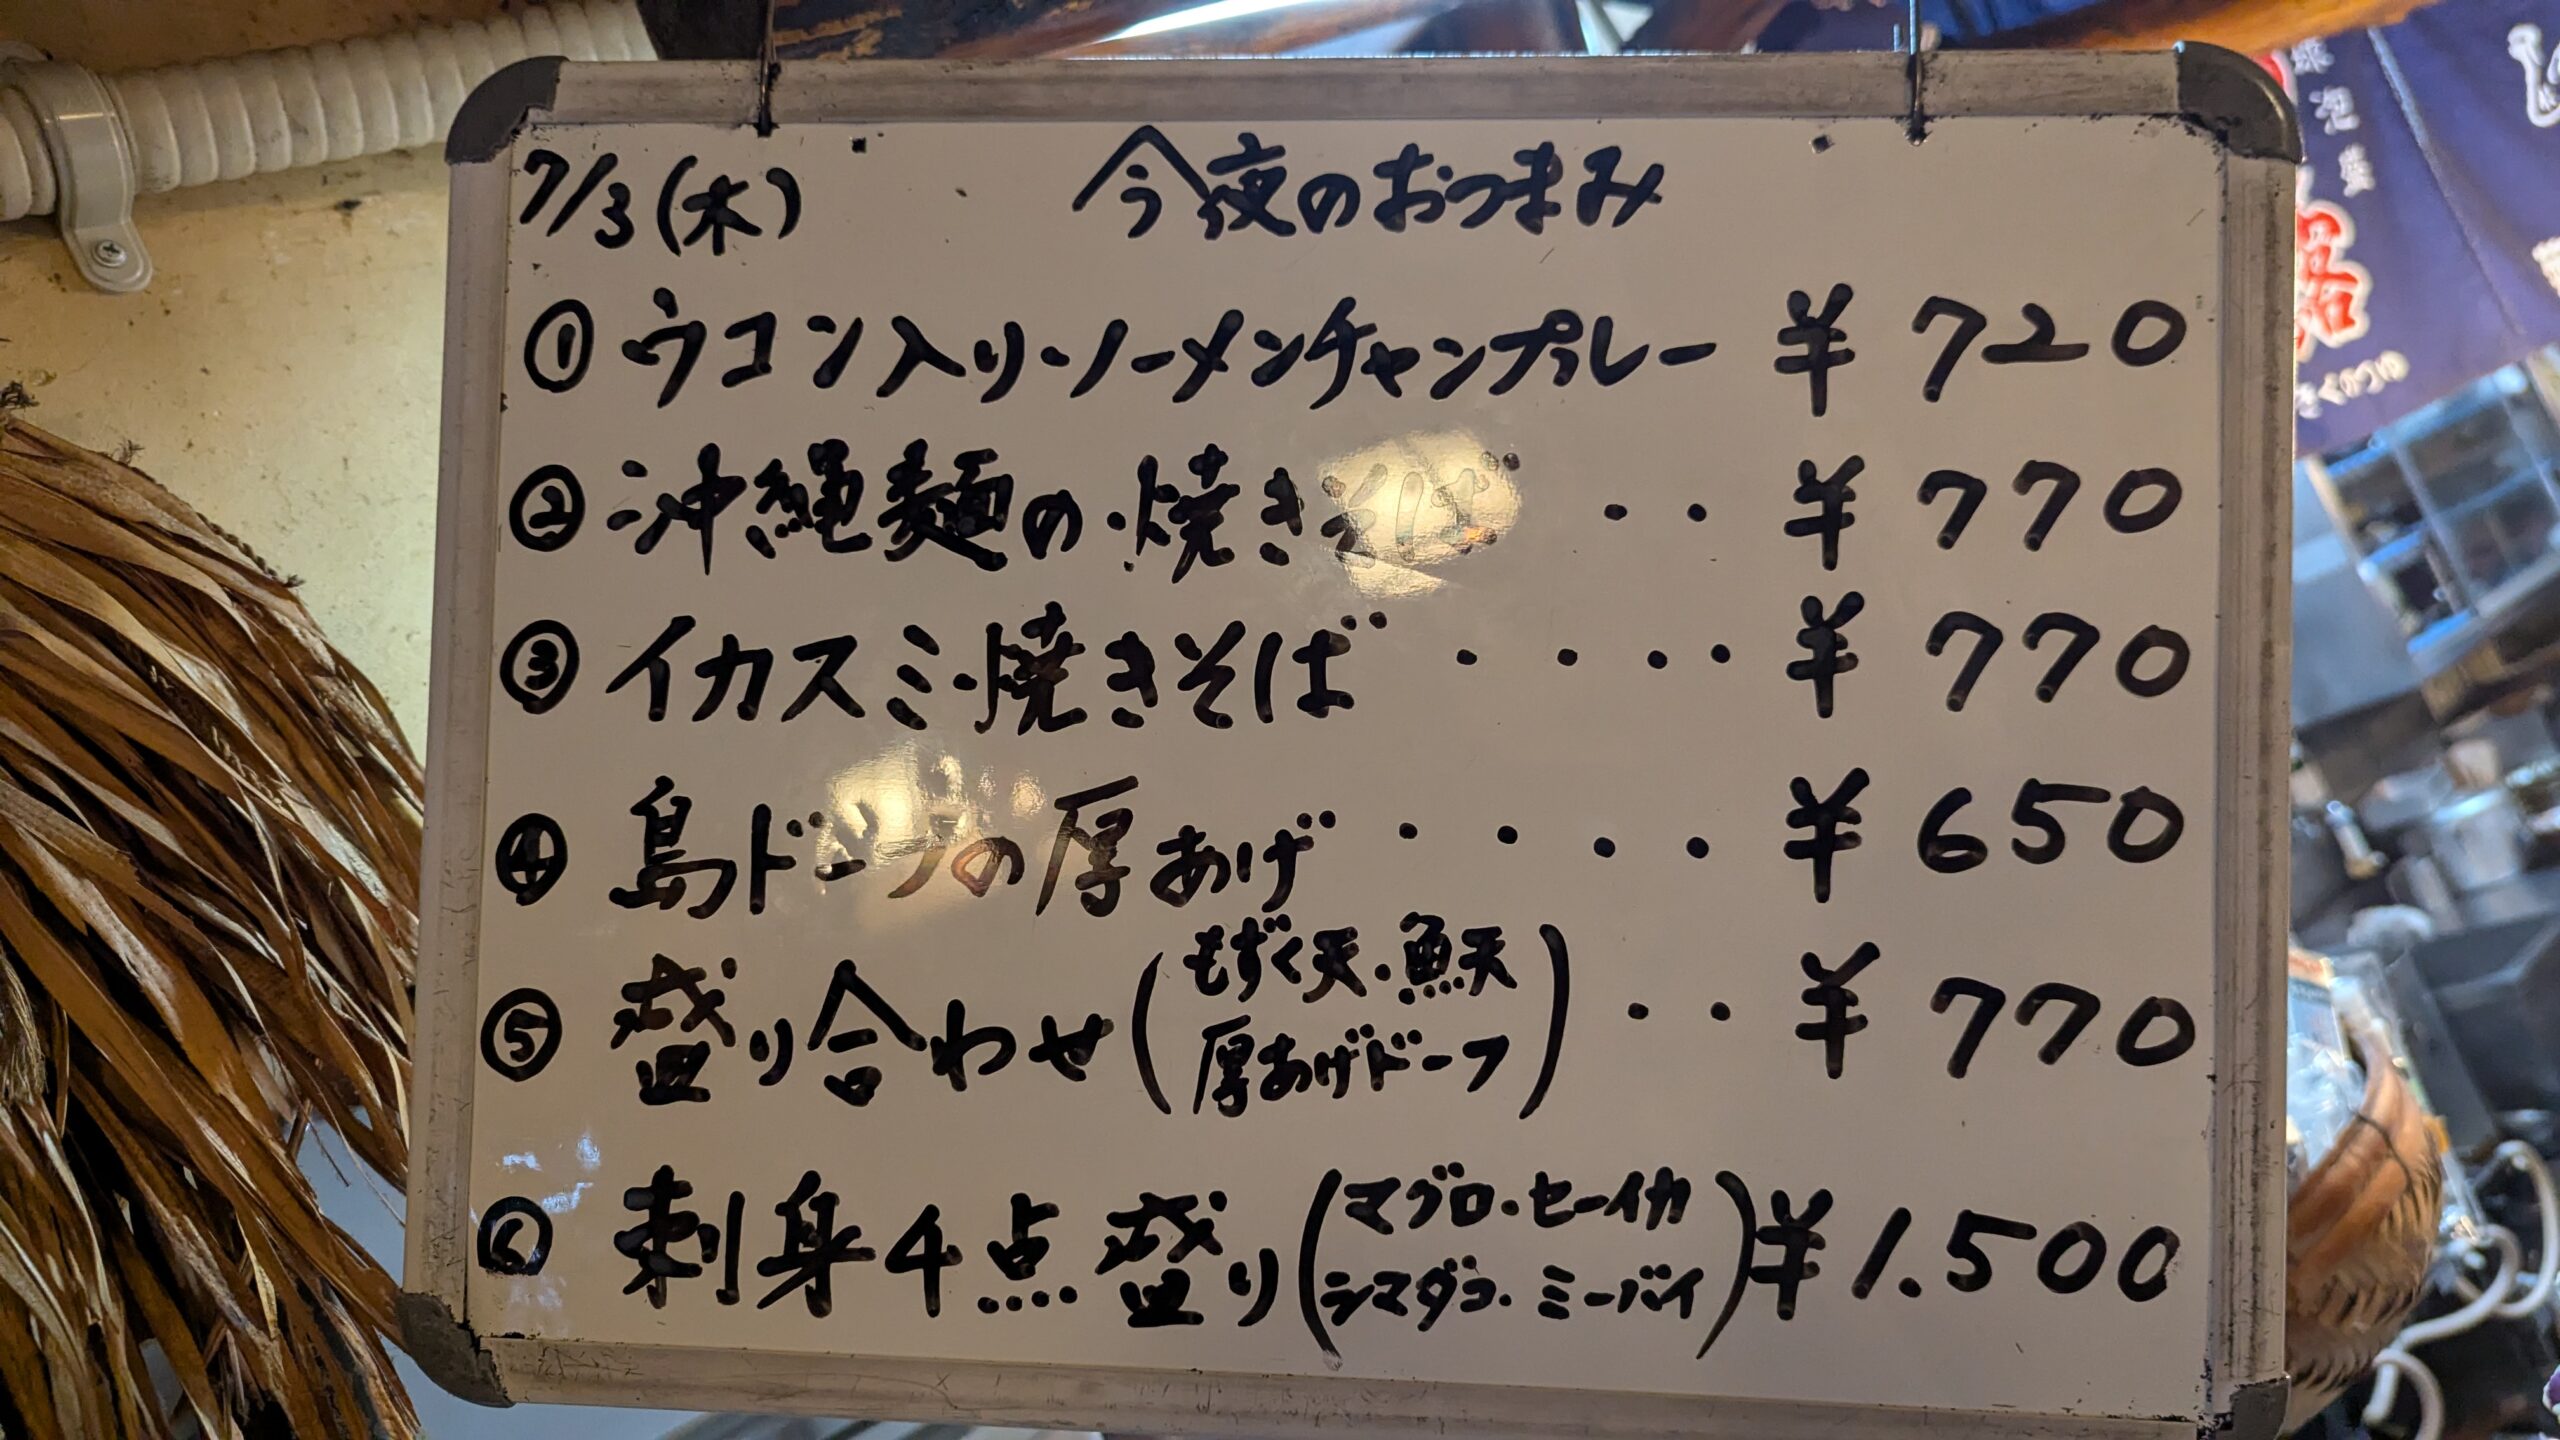 7/3(木) 今夜のおつまみ
① ウコン入り・ソーメンチャンプルー ¥720
② 沖縄麺の・焼きそば ・・ ¥770
③ イカスミ・焼きそば ・・・・ ¥770
④ 島ドーフの厚あげ ・・・・ ¥650
⑤ 盛り合わせ(もずく天・魚天
厚あげドーフ) ・・ ¥770
⑥ 刺身4点盛り(マグロ・セーイカ
シマダコ・ミーバイ) ¥1.500